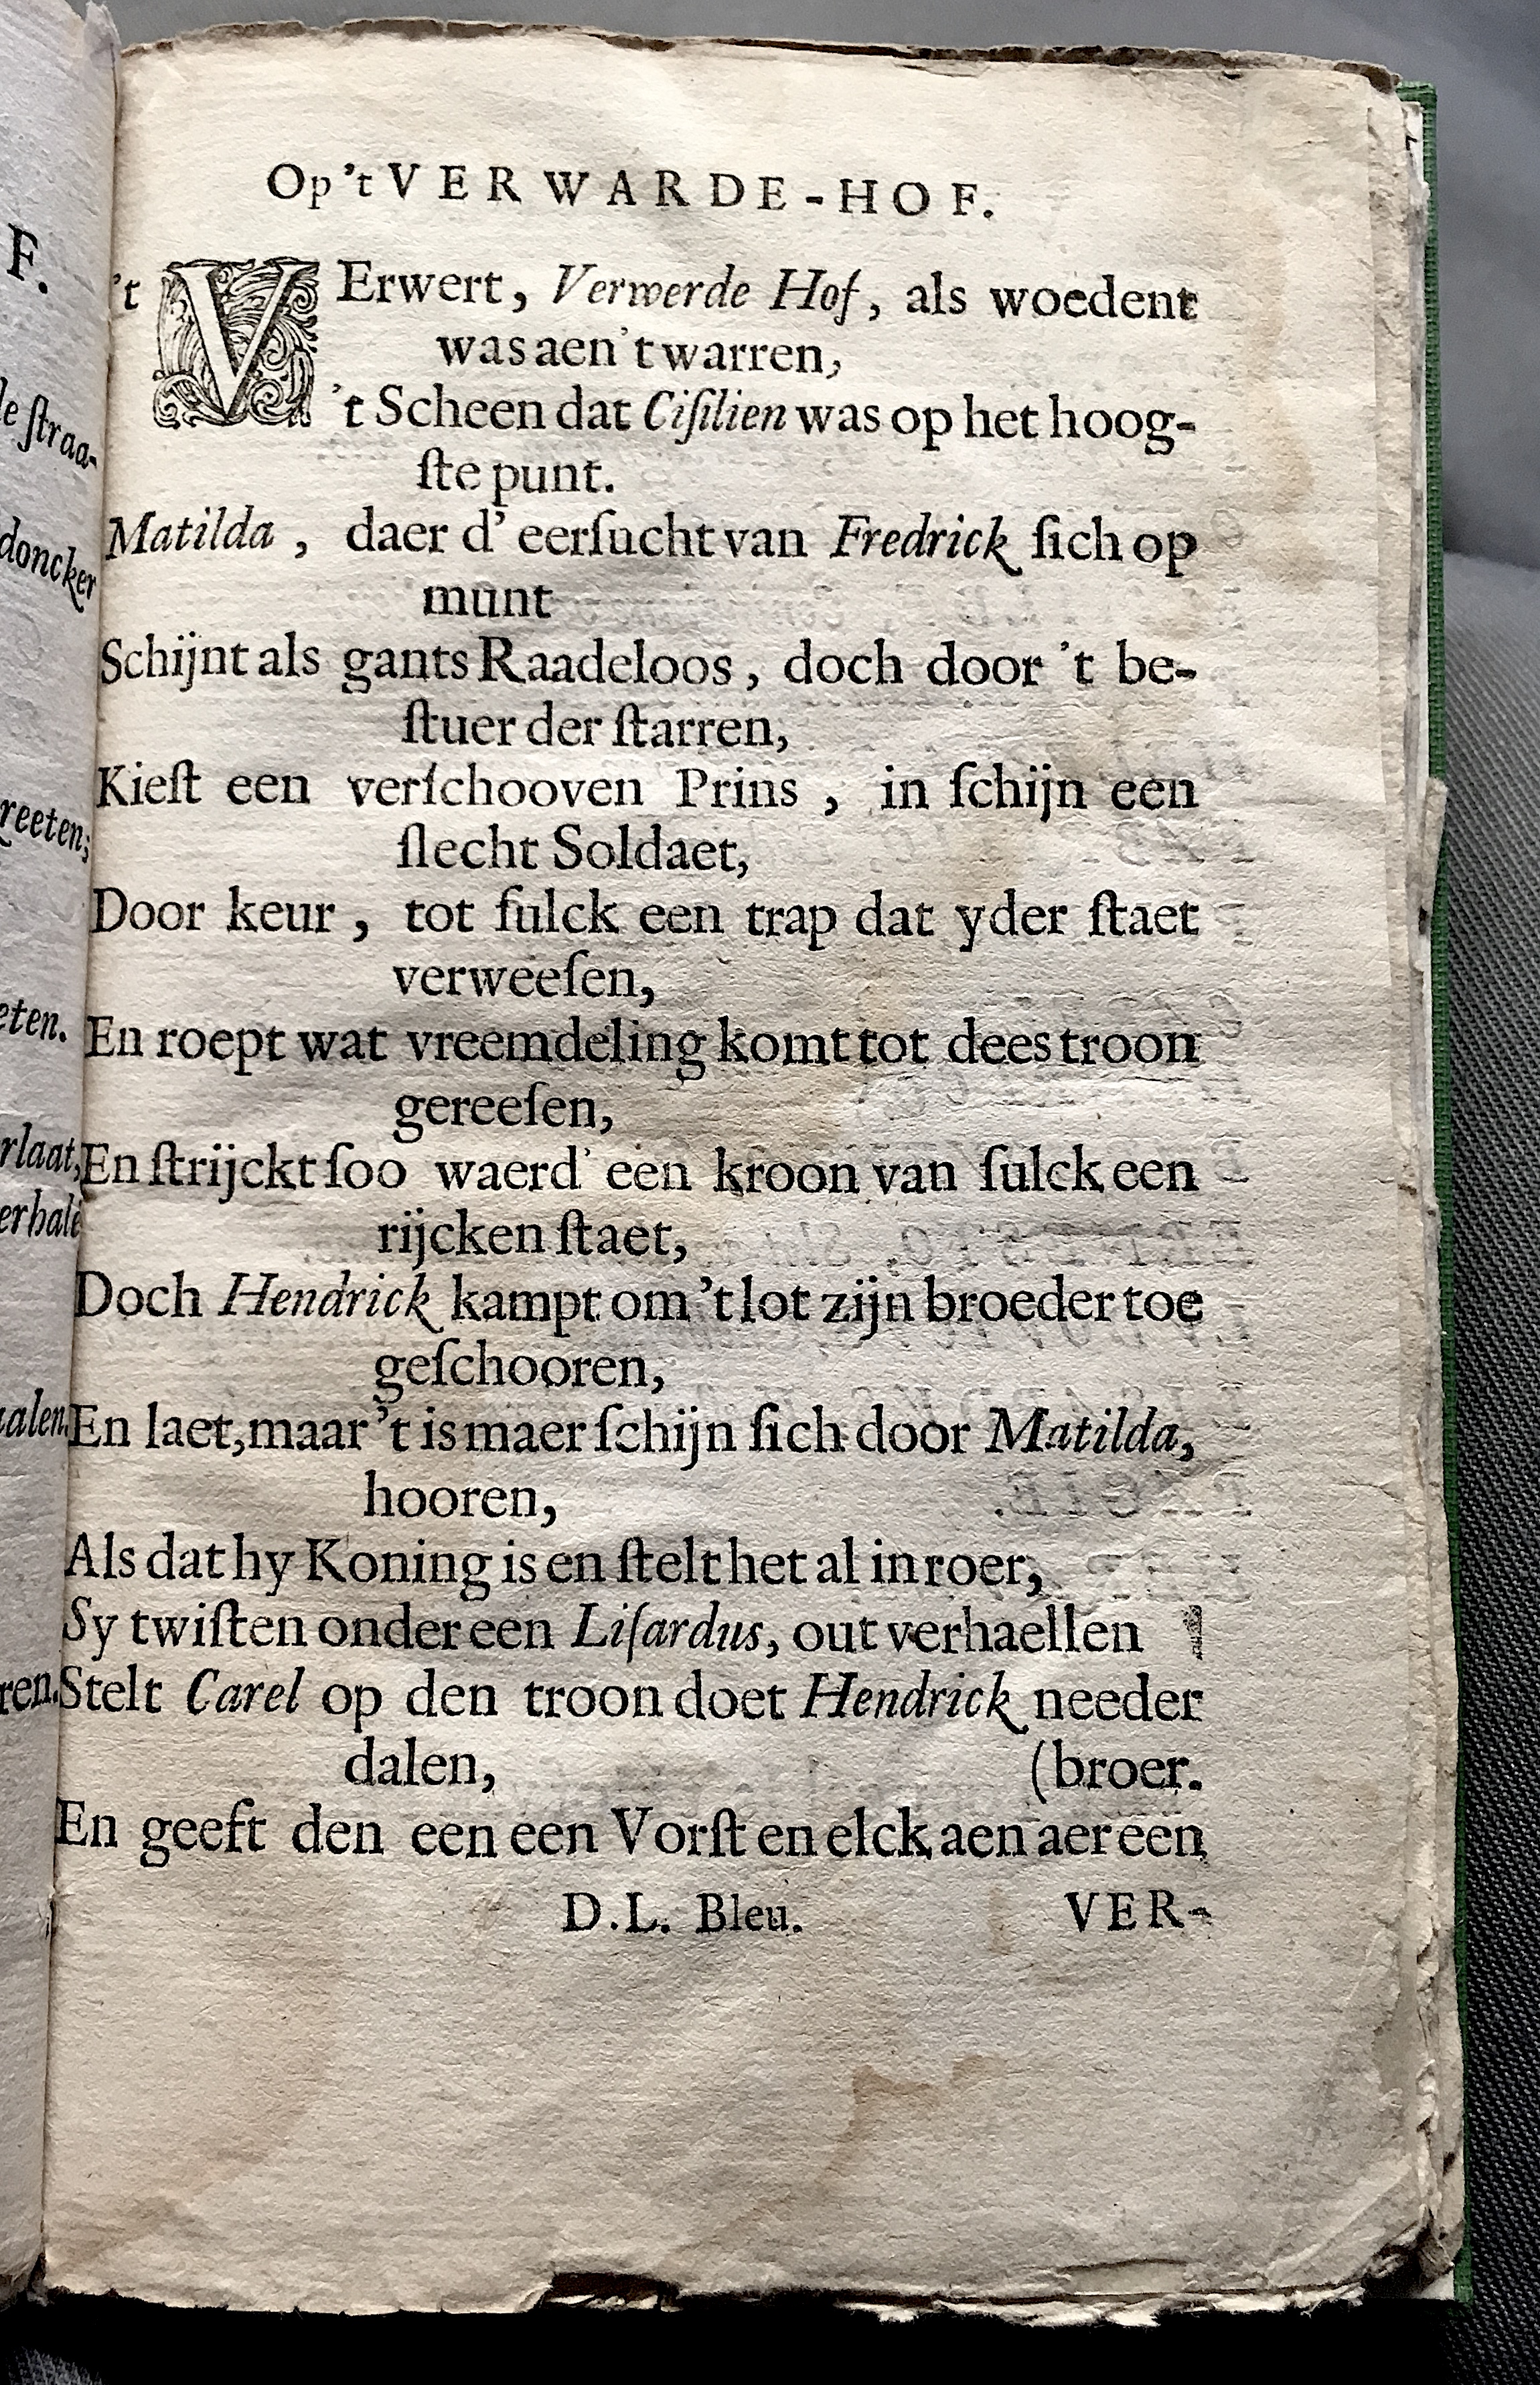 Op 't VERWARDE-HOF.
't VErwert, Verwerde Hof, als woedent
was aen 't warren,
't Scheen dat Ciſilien was op het hoog-
ſte punt.
Matilda, daer d' eerſucht van Fredrick ſich op
munt
Schijnt als gants Raadeloos, doch door 't be-
ſtuer der ſtarren,
Kieſt een verſchooven Prins, in ſchijn een
ſlecht Soldaet,
Door keur, tot ſulck een trap dat yder ſtaet
verweeſen,
En roept wat vreemdeling komt tot dees troon
gereeſen,
En ſtrijckt ſoo waerd' een kroon van ſulck een
rijcken ſtaet,
Doch Hendrick kampt om 't lot zijn broeder toe
geſchooren,
En laet, maar 't is maer ſchijn ſich door Matilda,
hooren,
Als dat hy Koning is en ſtelt het al in roer,
Sy twiſten onder een Liſardus, out verhaellen
Stelt Carel op den troon doet Hendrick needer
dalen, (broer.
En geeft den een een Vorſt en elck aen aer een
D.L. Bleu. VER-
F.
le ſtraa-
doncker
reeten;
eten.
rlaat,
erhale
aalen.
ren.